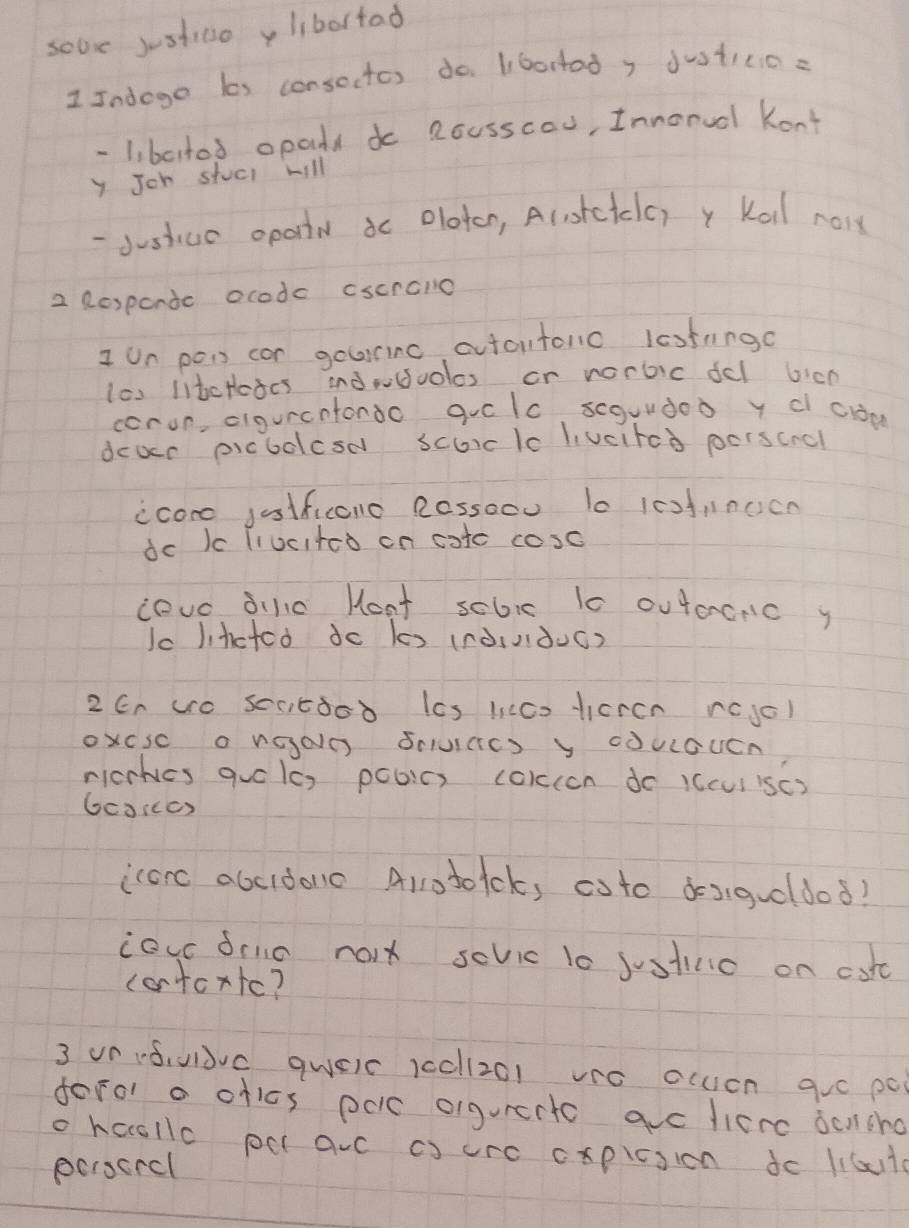 sobre justicia y libertad
1 Indaga los consectos de libertad y justicia =
- libertad aparti de Rousscau, Inmanuel Kant
y Jon stuar mill
- Justicia apartir de Platon, Aristoteles y Kal marx
2 Responde acada escenario
1 Un pais con gobierno autoritario restringe
las libertades individuales en nonbre del bien
comun, argumentando que la seguridad y el orden
deben prebaleser sobre la livertad personal
¿como justificaria Rossoou la restricion
de la livertad en este caso
¿Que diria Kant sobre la autonomia y
la libertad de los individuos
2 En una sociedad los ricos tienen mejor
axcso a mejores servicios y educacion
mientras que los pobres carecen de recursos
basicos
¿como abordaria Aristoteles esta desigualdad?
¿Que diria marx sovre la justicia en este
contexto?
3 un individuo quiere realizar una accion que
a otros pero argumenta que tiene derecho
a hacerlo por que es una expresion de
personal